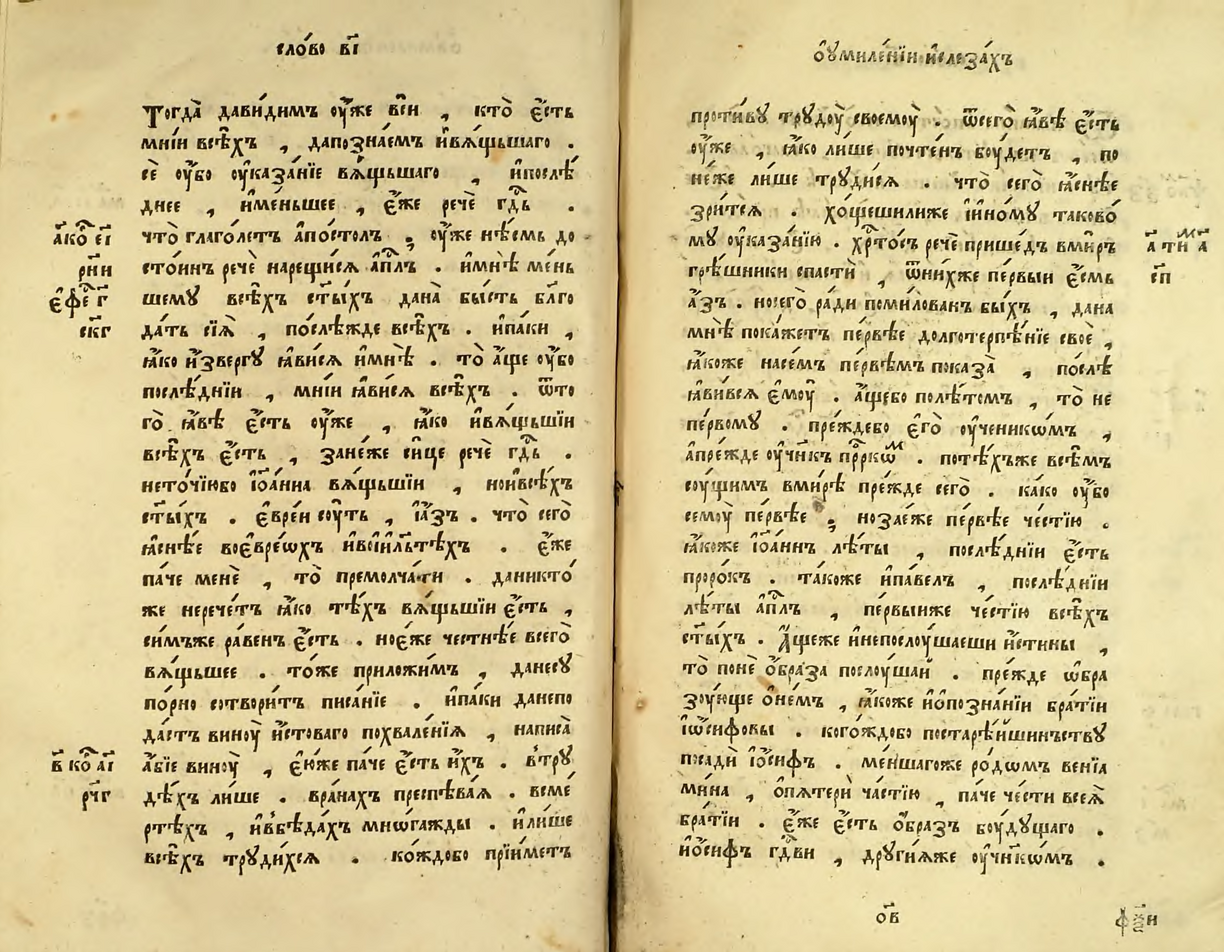 сло́во в҃і
Тогда̀ давиди́мъ оу҆́же вси , кто̀ є҆́сть
мні́и всѣ́хъ , дапозна́емъ и҆вѧ́щьшаго .
сѐ оу҆́бо оу҆каза́нїе вѧ́щьшаго , и҆послѣ́
днее , и҆ме́ньшее , є҆́же речѐ гд҇ь .
а҆ ко҇ є҃і
что̀ глаго́летъ а҆по́столъ , оу҆́же нѣ́смь до
рни
сто́инъ речѐ нарещи́сѧ а҆пл҇ъ . и҆мнѣ̀ ме́нь
є҆фе҇ г҃
шемꙋ всѣ́хъ ст҃ы́хъ дана̀ бы́сть бл҃го
скг
да́ть сїѧ̀ , послѣ́жде всѣ́хъ . и҆па́ки ,
ꙗ҆́ко и҆́звергꙋ ꙗ҆ви́сѧ и҆мнѣ̀ . то̀ а҆́ще оу҆́бо
послѣ́днїи , мні́и ꙗ҆ви́сѧ всѣ́хъ . ѿто
го̀ ꙗ҆́вѣ є҆́сть оу҆́же , ꙗ҆́ко и҆вѧ́щьшїи
всѣ́хъ є҆́сть , зане́же си́це речѐ гд҇ь .
нето́чїюбо і҆ѡа́нна вѧ́щьшїи , нои҆всѣ́хъ
ст҃ы́хъ . є҆вре́и соу́ть , і҆а҆́зъ . что̀ сего̀
ꙗ҆́снѣе вое҆вре́ѡхъ и҆вої҆и҃льтѣхъ . є҆́же
па́че менѐ , то̀ премолча́ти . даникто́
же нерече́тъ ꙗ҆́ко тѣ́хъ вѧ́щьшїи є҆́сть ,
си́мъже ра́венъ є҆́сть . ное҆же честнѣ́е всего̀
вѧ́щьшее . то́же приложи́мъ , данесꙋ
по́рно сотвори́тъ писа́нїе . и҆па́ки данепо
да́стъ виноу̀ и҆́стоваго похвале́нїѧ , написа̀
в҃ ко҇ а҃і
а҆́бїе виноу̀ , є҆ю́же па́че є҆́сть и҆́хъ . втрꙋ
рчг
дѣ́хъ ли́ше . вра́нахъ преспѣва́ѧ . всме
ртѣхъ , и҆вбѣда́хъ мно́гажды . и҆ли́ше
всѣ́хъ трꙋди́хсѧ . ко́ждобо прїи́метъ
ѻ҆умиле́нїи и҆слеза́хъ
проти́вꙋ трꙋдоу̀ своемоу̀ . ѿсего̀ ꙗ҆́вѣ є҆́сть
оу҆́же , ꙗ҆́ко ли́ше почте́нъ боу́детъ , по
не́же ли́ше трꙋди́сѧ . что̀ сего̀ ꙗ҆́снѣе
зри́тсѧ . хо́щешилиже і҆и҆но́мꙋ таково́
мꙋ оу҆каза́нїю . хр҇то́съ речѐ прише́дъ вми́ръ
а҃ ти м а҃
грѣ́шники спастѝ , ѿни́хже пе́рвыи є҆́смь
сп
а҆́зъ . носего̀ ра́ди поми́лованъ бы́хъ , дана
мнѣ̀ пока́жетъ пе́рвѣе долготерпѣ́нїе своѐ ,
ꙗ҆́коже насе́мъ пе́рвѣмъ показа̀ , послѣ́
ꙗ҆ви́всѧ є҆моу̀ . а҆́щебо полѣ́томъ , то̀ не
пе́рвомꙋ . пре́ждебо є҆го̀ оу҆ченикѡ́мъ ,
а҆пре́жде оу҆чн҃къ прⷪ҇ркѡ́м . поте́хъже всѣ́мъ
соу́щимъ вми́рѣ пре́жде сего̀ . ка́ко оу҆́бо
семоу̀ пе́рвѣе ; нозае҆́же пе́рвѣе че́стїю .
ꙗ҆́коже і҆ѡа́ннъ лѣ́ты , послѣ́днїи є҆́сть
проро́къ . та́коже и҆па́велъ , послѣ́днїи
лѣ́ты а҆пл҇ъ , пе́рвыиже че́стїю всѣ́хъ
ст҃ы́хъ . А҆́щеже и҆непослоу́шаеши и҆́стины ,
то̀ понѐ ѻ҆́браза послоу́шаи . пре́жде ѡ҆бра
зоую́ще ѻ҆не́мъ , ꙗ҆́коже и҆ѻ҆позна́нїи бра́тїи
і҆ѡ́сифовы . кого́ждобо постарѣ́ишиньствꙋ
псадѝ і҆ѻ́сифъ . ме́ншагоже ро́дѡмъ венїа
мина , ѻ҆пѧтерѝ ча́стїю , па́че че́сти всеѧ̀
бра́тїи . є҆́же є҆́сть ѻ҆́бразъ боу́дꙋщаго .
и҆ѻ́сифъ гд҇ви , дрꙋги́ѧже оу҆чн҃кѡмъ .
ѻ҃в